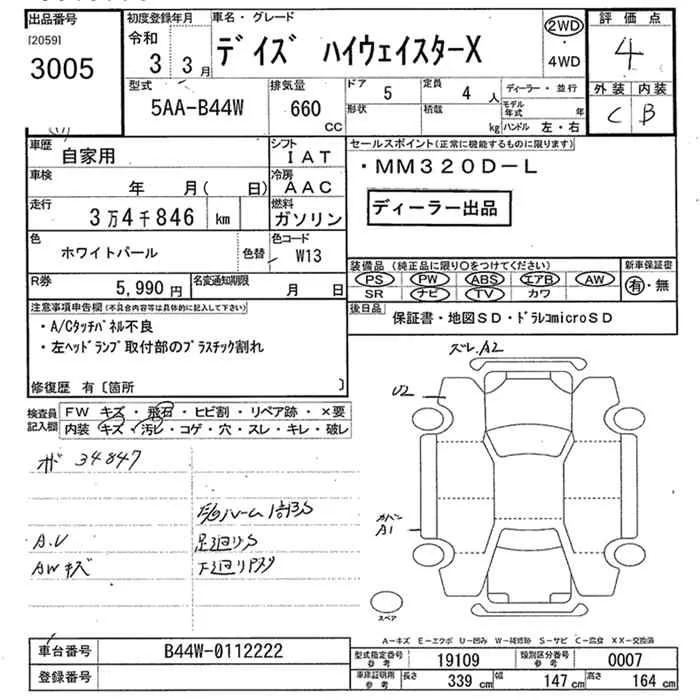 出品番号 初度登録年月 車名・グレード 評価点
[2059] 令和 2WD
3005 3 3月 デイズ ハイウェイスターX ・ 4
4WD
型式 排気量 ドア 5 定員 4 人 ディーラー・並行 外装 内装
5AA-B44W 660 CC 形状 積載 kg モデル年式 年 C B
ハンドル 左・右
車歴 自家用 シフト IAT セールスポイント(正常に機能するものに限ります)
車検 年 月( 日) 冷房 AAC ・MM320D-L
走行 3万4千846 km 燃料 ガソリン ディーラー出品
色 ホワイトパール 色替 色コード W13
装備品(純正品に限り○をつけてください) 新車保証書
R券 5,990円 名変通知期限 月 日 PS PW ABS エアB AW 有・無
SR ナビ TV カワ
注意事項申告欄(不具合内容等は具体的に記入して下さい) 後日品 保証書・地図SD・ドラレコmicroSD
・A/Cタッチパネル不良
・左ヘッドランプ取付部のプラスチック割れ
修復歴 有〔箇所 〕
ズレ.A2
U2
検査員記入欄 FW キズ・飛石・ヒビ割・リペア跡・×要
内装 キズ・汚レ・コゲ・穴・スレ・キレ・破レ
オド 34847
A1
A.V 足廻りS
AWキズ 下廻りPサ
スペア
A-キズ E-エクボ U-凹み W-補修跡 S-サビ C-腐食 XX-交換済
車台番号 B44W-0112222 型式指定番号 参考 19109 類別区分番号 参考 0007
登録番号 車庫証明用 参考 長さ 339 cm 幅 147 cm 高さ 164 cm